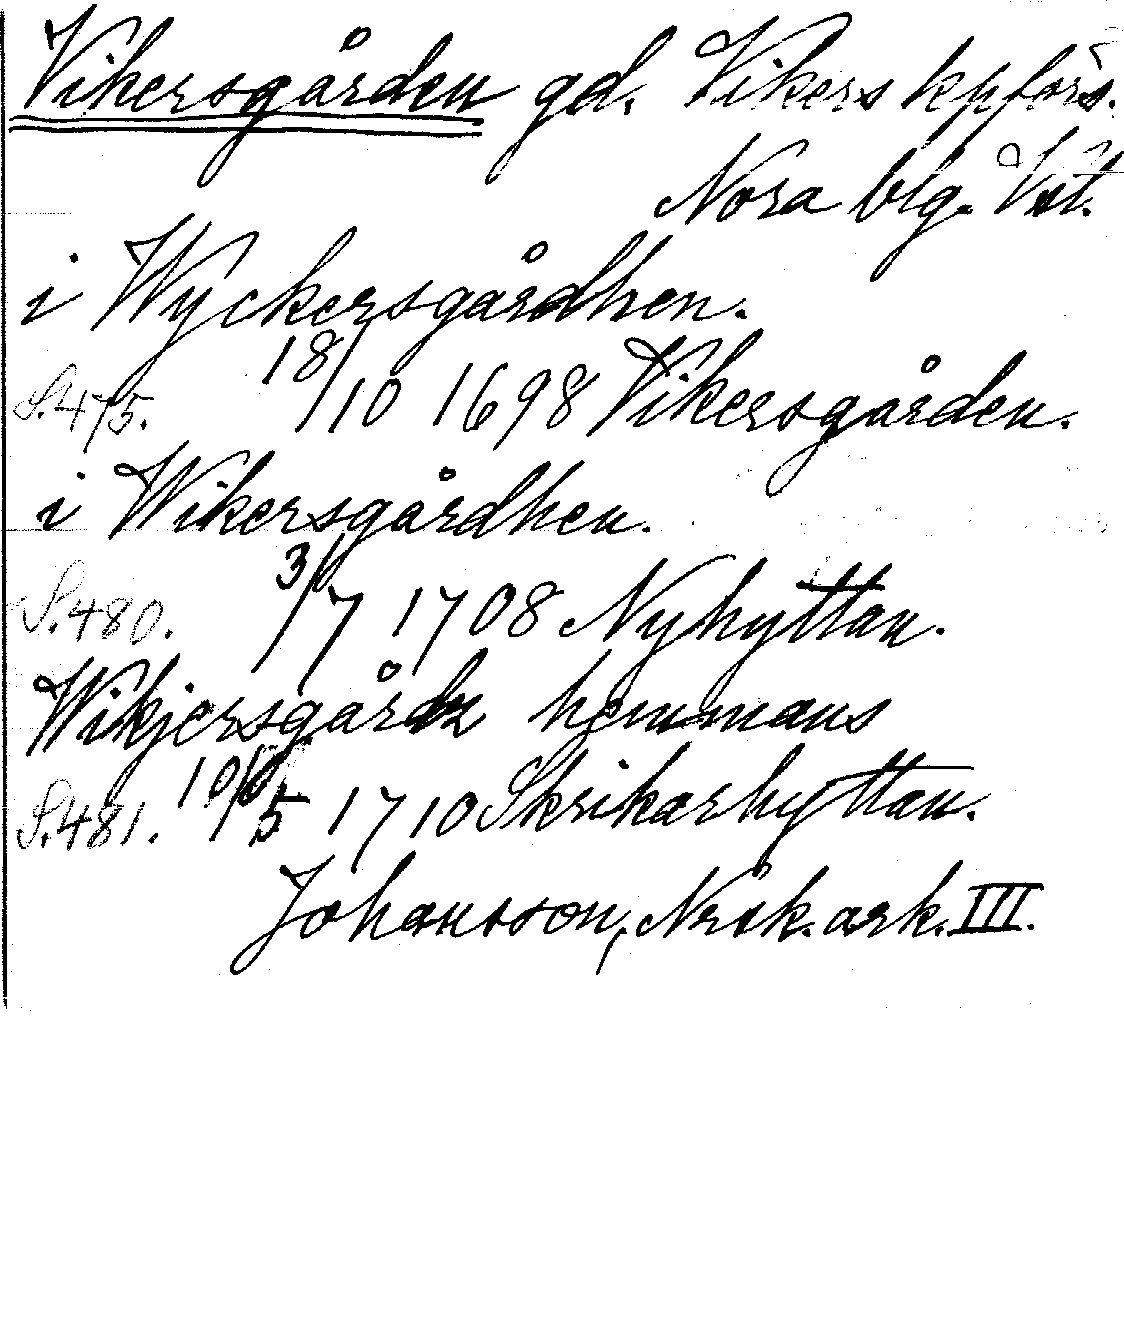 Vikersgården gd. Vikers kpförs.
Nora blg. Vstl.
i Wyckersgårdhen.
S. 475. 18/10 1698 Vikersgården.
i Wikersgårdhen.
S. 480. 3/7 1708 Nyhyttan.
Wikjersgårdz hemmans
S. 481. 10/5 1710 Skrikarhyttan.
Johansson, Norsk. ark. III.